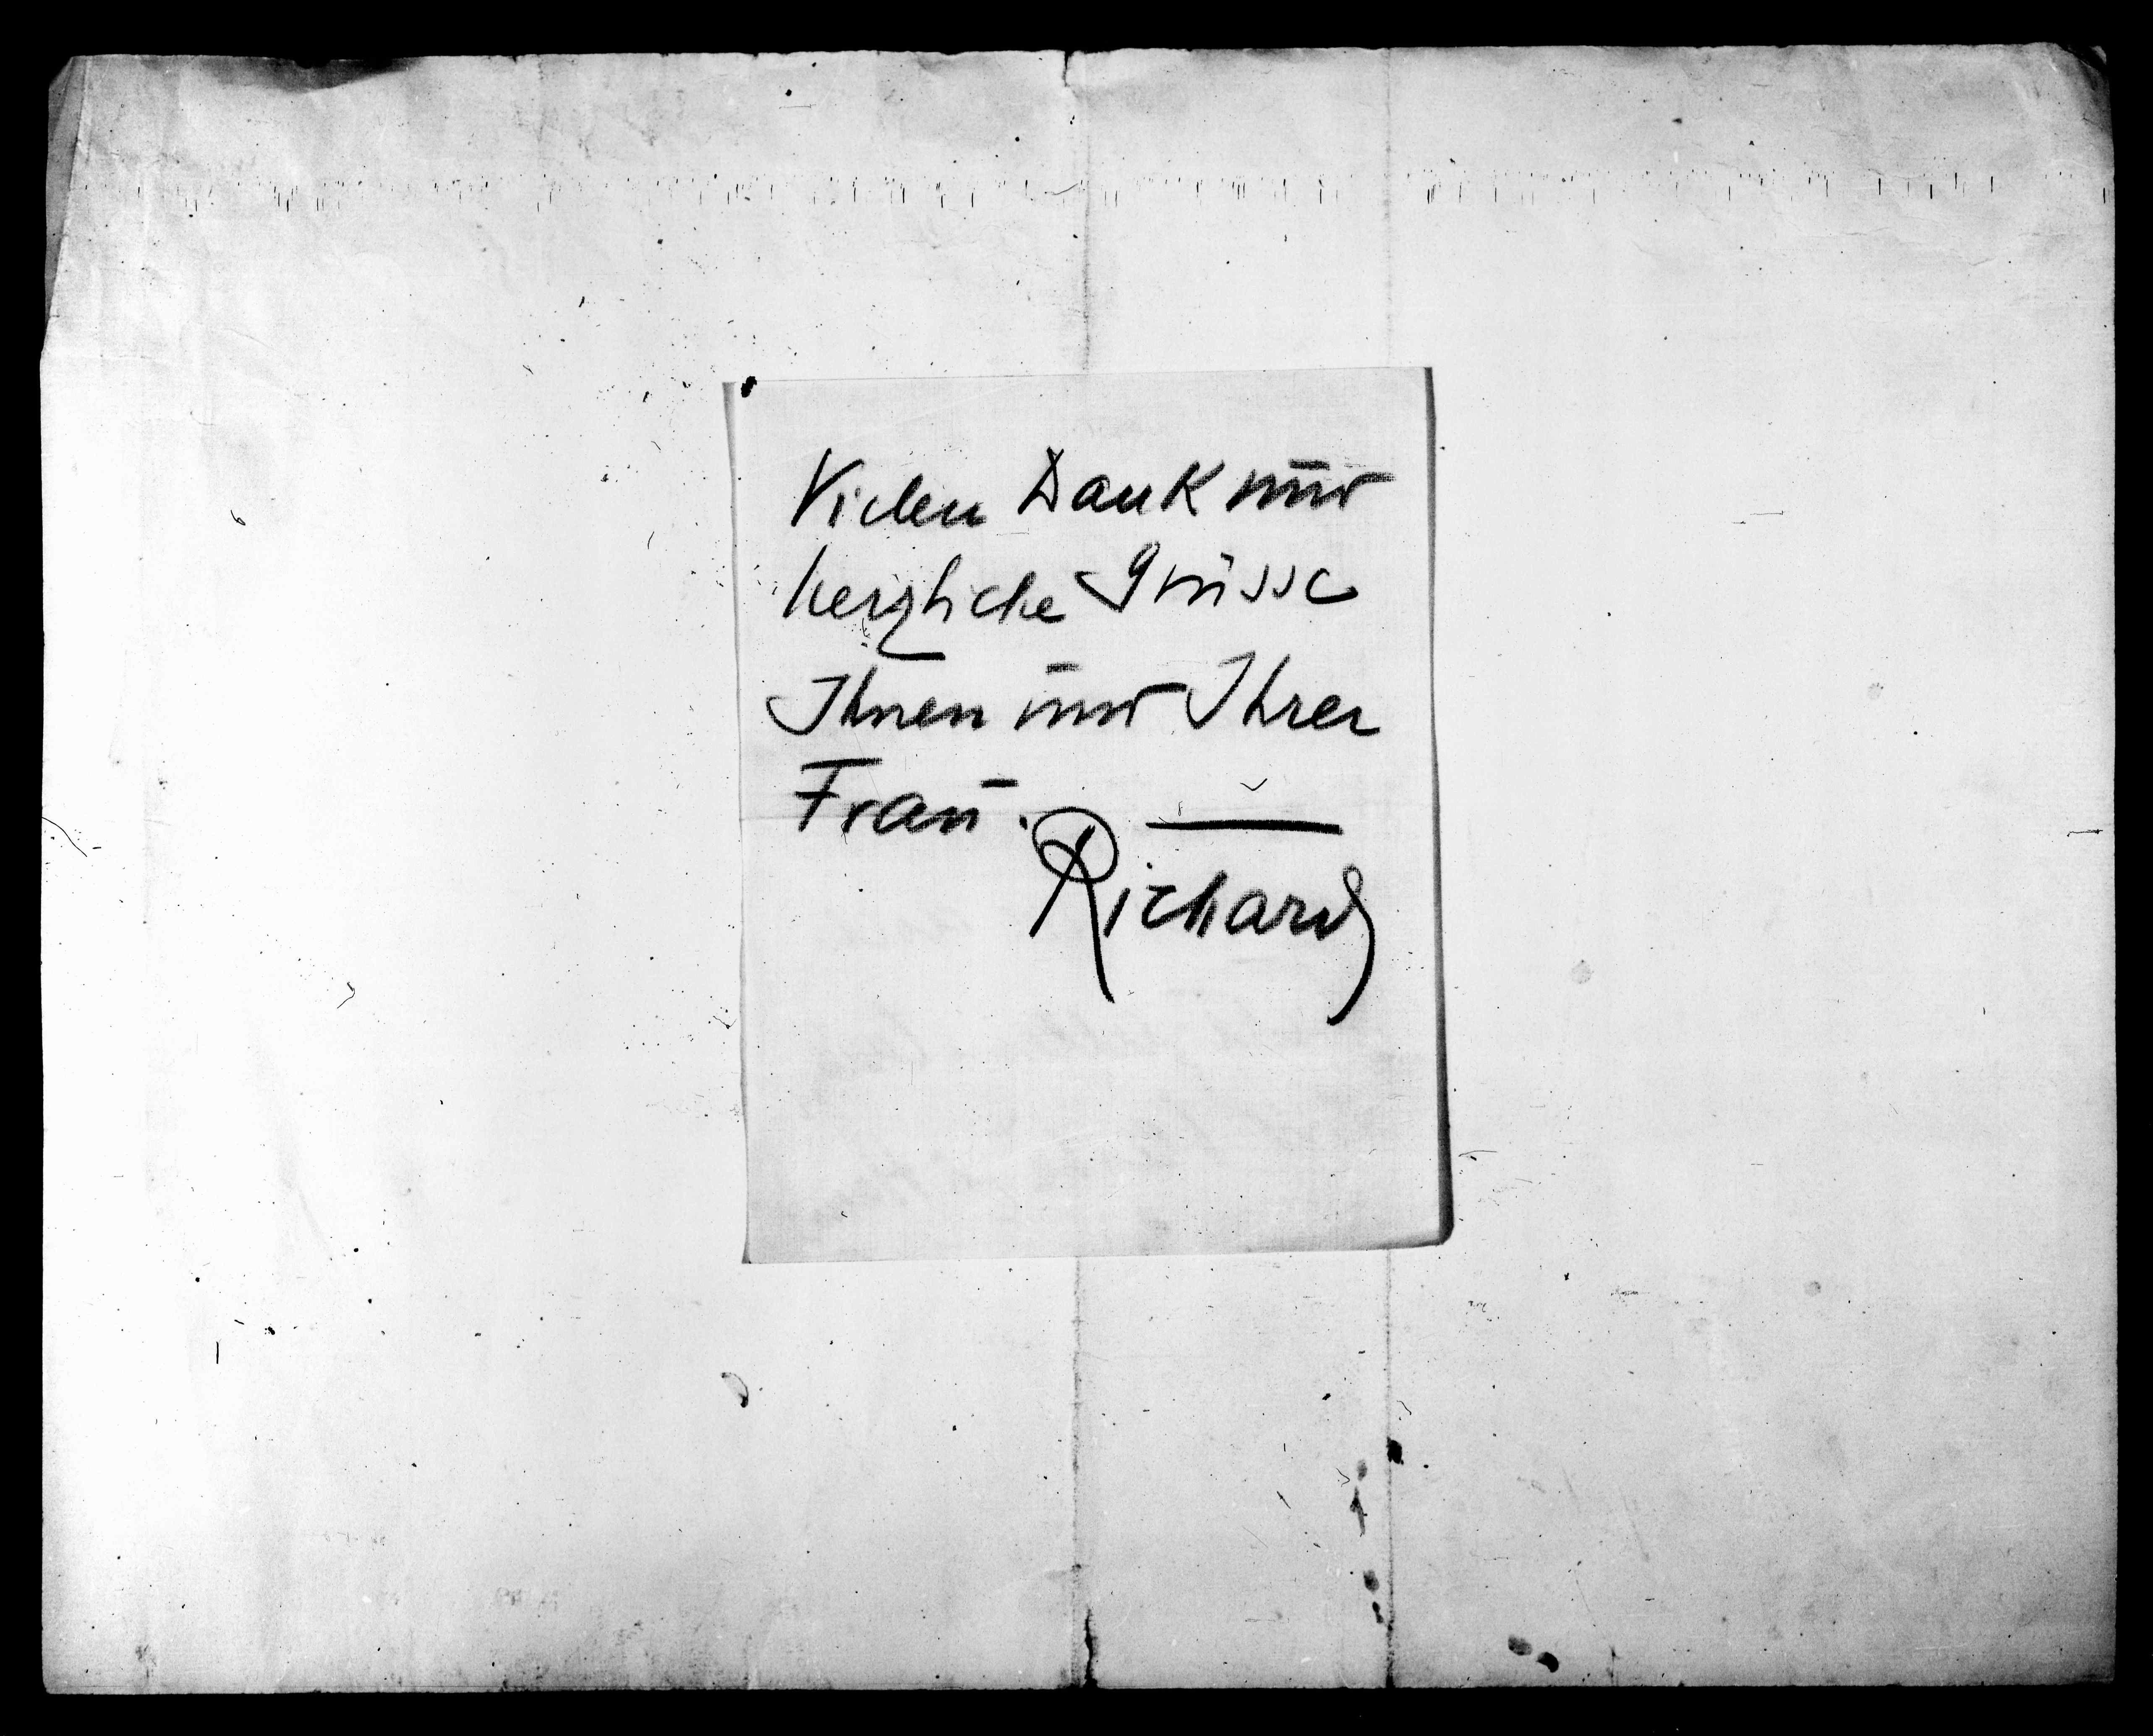 Vielen Dank und
herzliche Grüsse
Ihnen und Ihrer
Frau.
Richard